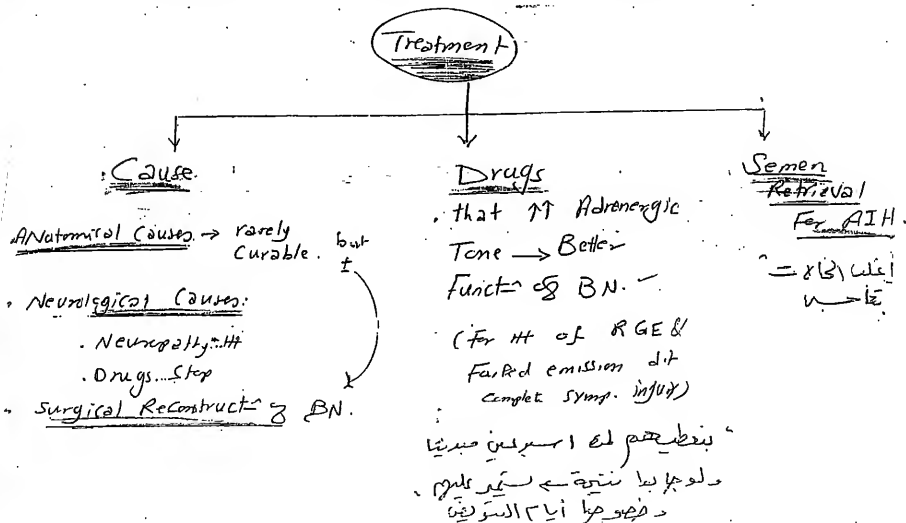 Treatment
Cause.
ANatomical Causes → rarely
Curable. but ±
. Neurological Causes:
. Neuropathy.. ttt
. Drugs... Stop
. Surgical Reconstructⁿ of BN.
Drugs
. that ↑↑ Adrenergic
Tone → Better
Functⁿ of BN.
(For ttt of RGE &
Failed emission d.t
Complet symp. injury)
بنعطيهم لمدة اسبوعين مبدئيا
ولو جابوا نتيجة نستمر عليهم
وخصوصا أيام التبويض
Semen
Retrieval
For AIH.
أغلب الحالات